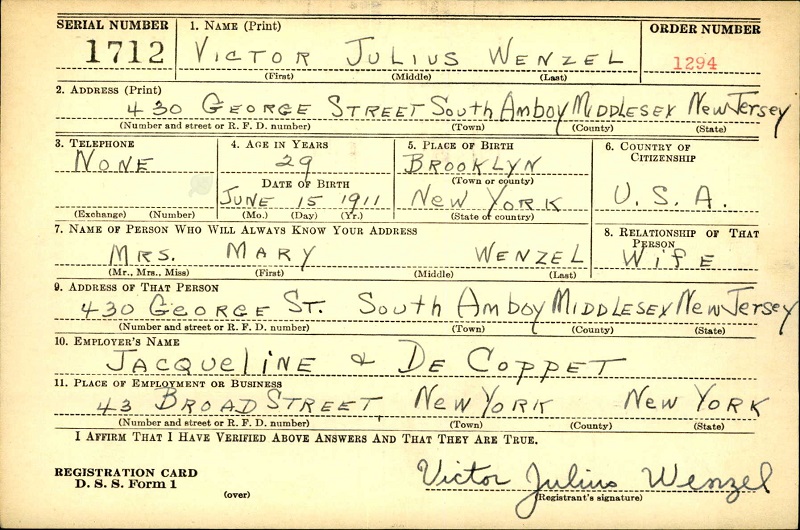 SERIAL NUMBER 1. NAME (Print) ORDER NUMBER
1712 VICTOR JULIUS WENZEL 1294
(First) (Middle) (Last)
2. ADDRESS (Print)
430 GEORGE STREET South Amboy MIDDLESEX New Jersey
(Number and street or R. F. D. number) (Town) (County) (State)
3. TELEPHONE 4. AGE IN YEARS 5. PLACE OF BIRTH 6. COUNTRY OF CITIZENSHIP
NONE 29 BROOKLYN
DATE OF BIRTH (Town or county)
JUNE 15 1911 NEW YORK U.S.A.
(Exchange) (Number) (Mo.) (Day) (Yr.) (State or country)
7. NAME OF PERSON WHO WILL ALWAYS KNOW YOUR ADDRESS 8. RELATIONSHIP OF THAT PERSON
MRS. MARY WENZEL WIFE
(Mr., Mrs., Miss) (First) (Middle) (Last)
9. ADDRESS OF THAT PERSON
430 GEORGE ST. South Amboy MIDDLESEX New Jersey
(Number and street or R. F. D. number) (Town) (County) (State)
10. EMPLOYER'S NAME
JACQUELINE & DE COPPET
11. PLACE OF EMPLOYMENT OR BUSINESS
43 BROAD STREET, NEW YORK NEW YORK
(Number and street or R. F. D. number) (Town) (County) (State)
I AFFIRM THAT I HAVE VERIFIED ABOVE ANSWERS AND THAT THEY ARE TRUE.
REGISTRATION CARD
D. S. S. Form 1 Victor Julius Wenzel
(over) (Registrant's signature)